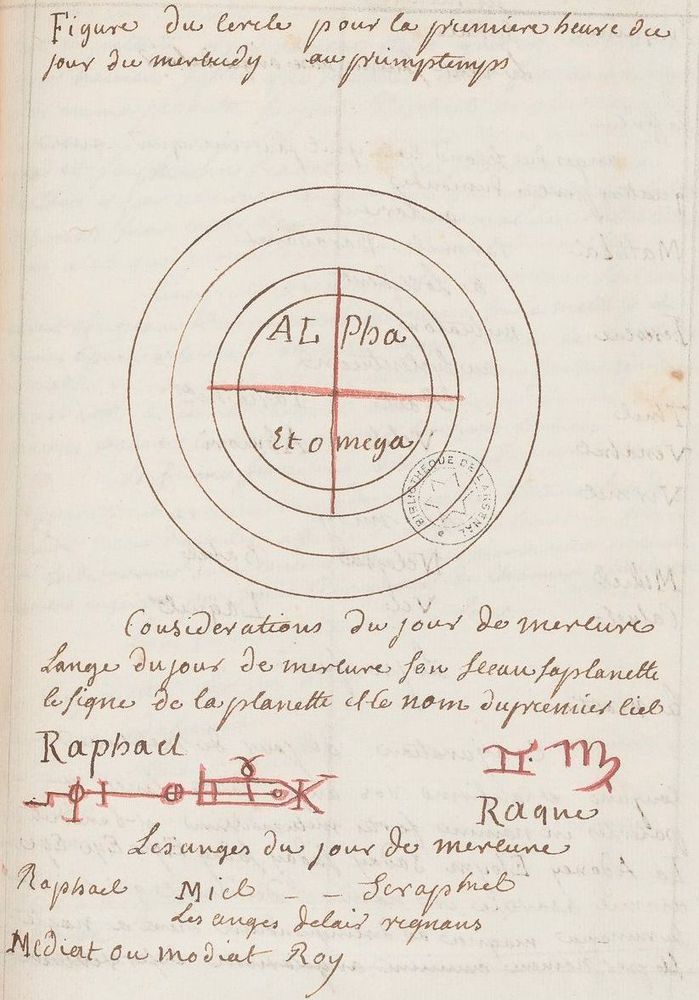 Figure du Cercle pour la premiere heure du
jour du mercudy au primptemps
ALPha
Et omega
BIBLIOTHEQUE DE L'ARSENAL
Considerations du jour de mercure
Lange du jour de mercure son sceau sa planette
le signe de la planette et le nom du premier Ciel
Raphael
♊ ♍
Raque
Les anges du jour de mercure
Raphael Miel - - Seraphiel
Les anges de lair regnans
Mediat ou modiat Roy